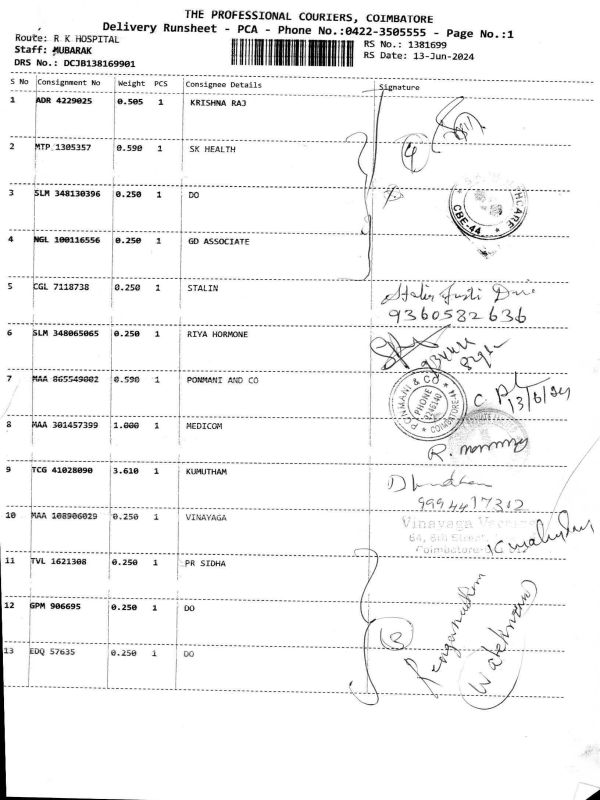 THE PROFESSIONAL COURIERS, COIMBATORE
Delivery Runsheet - PCA - Phone No.:0422-3505555 - Page No.:1
Route: R K HOSPITAL
RS No.: 1381699
Staff: MUBARAK
RS Date: 13-Jun-2024
DRS No.: DCJB138169901
S No Consignment No Weight PCS Consignee Details Signature
1 ADR 4229025 0.505 1 KRISHNA RAJ
2 MTP 1305357 0.590 1 SK HEALTH
4
3 SLM 348130396 0.250 1 DO
CBE-44
4 NGL 100116556 0.250 1 GD ASSOCIATE
5 CGL 7118738 0.250 1 STALIN
9360532636
6 SLM 348065065 0.250 1 RIYA HORMONE
7 MAA 865549002 0.590 1 PONMANI AND CO
PONMANI & CO
PHONE
COIMBATORE
13/6/24
8 MAA 301457399 1.000 1 MEDICOM
R.
9 TCG 41028090 3.610 1 KUMUTHAM
9994417312
10 MAA 108906029 0.250 1 VINAYAGA
Vinayaga
64, 6th Street,
Coimbatore
11 TVL 1621308 0.250 1 PR SIDHA
12 GPM 906695 0.250 1 DO
3
13 EDQ 57635 0.250 1 DO
(Watchman)